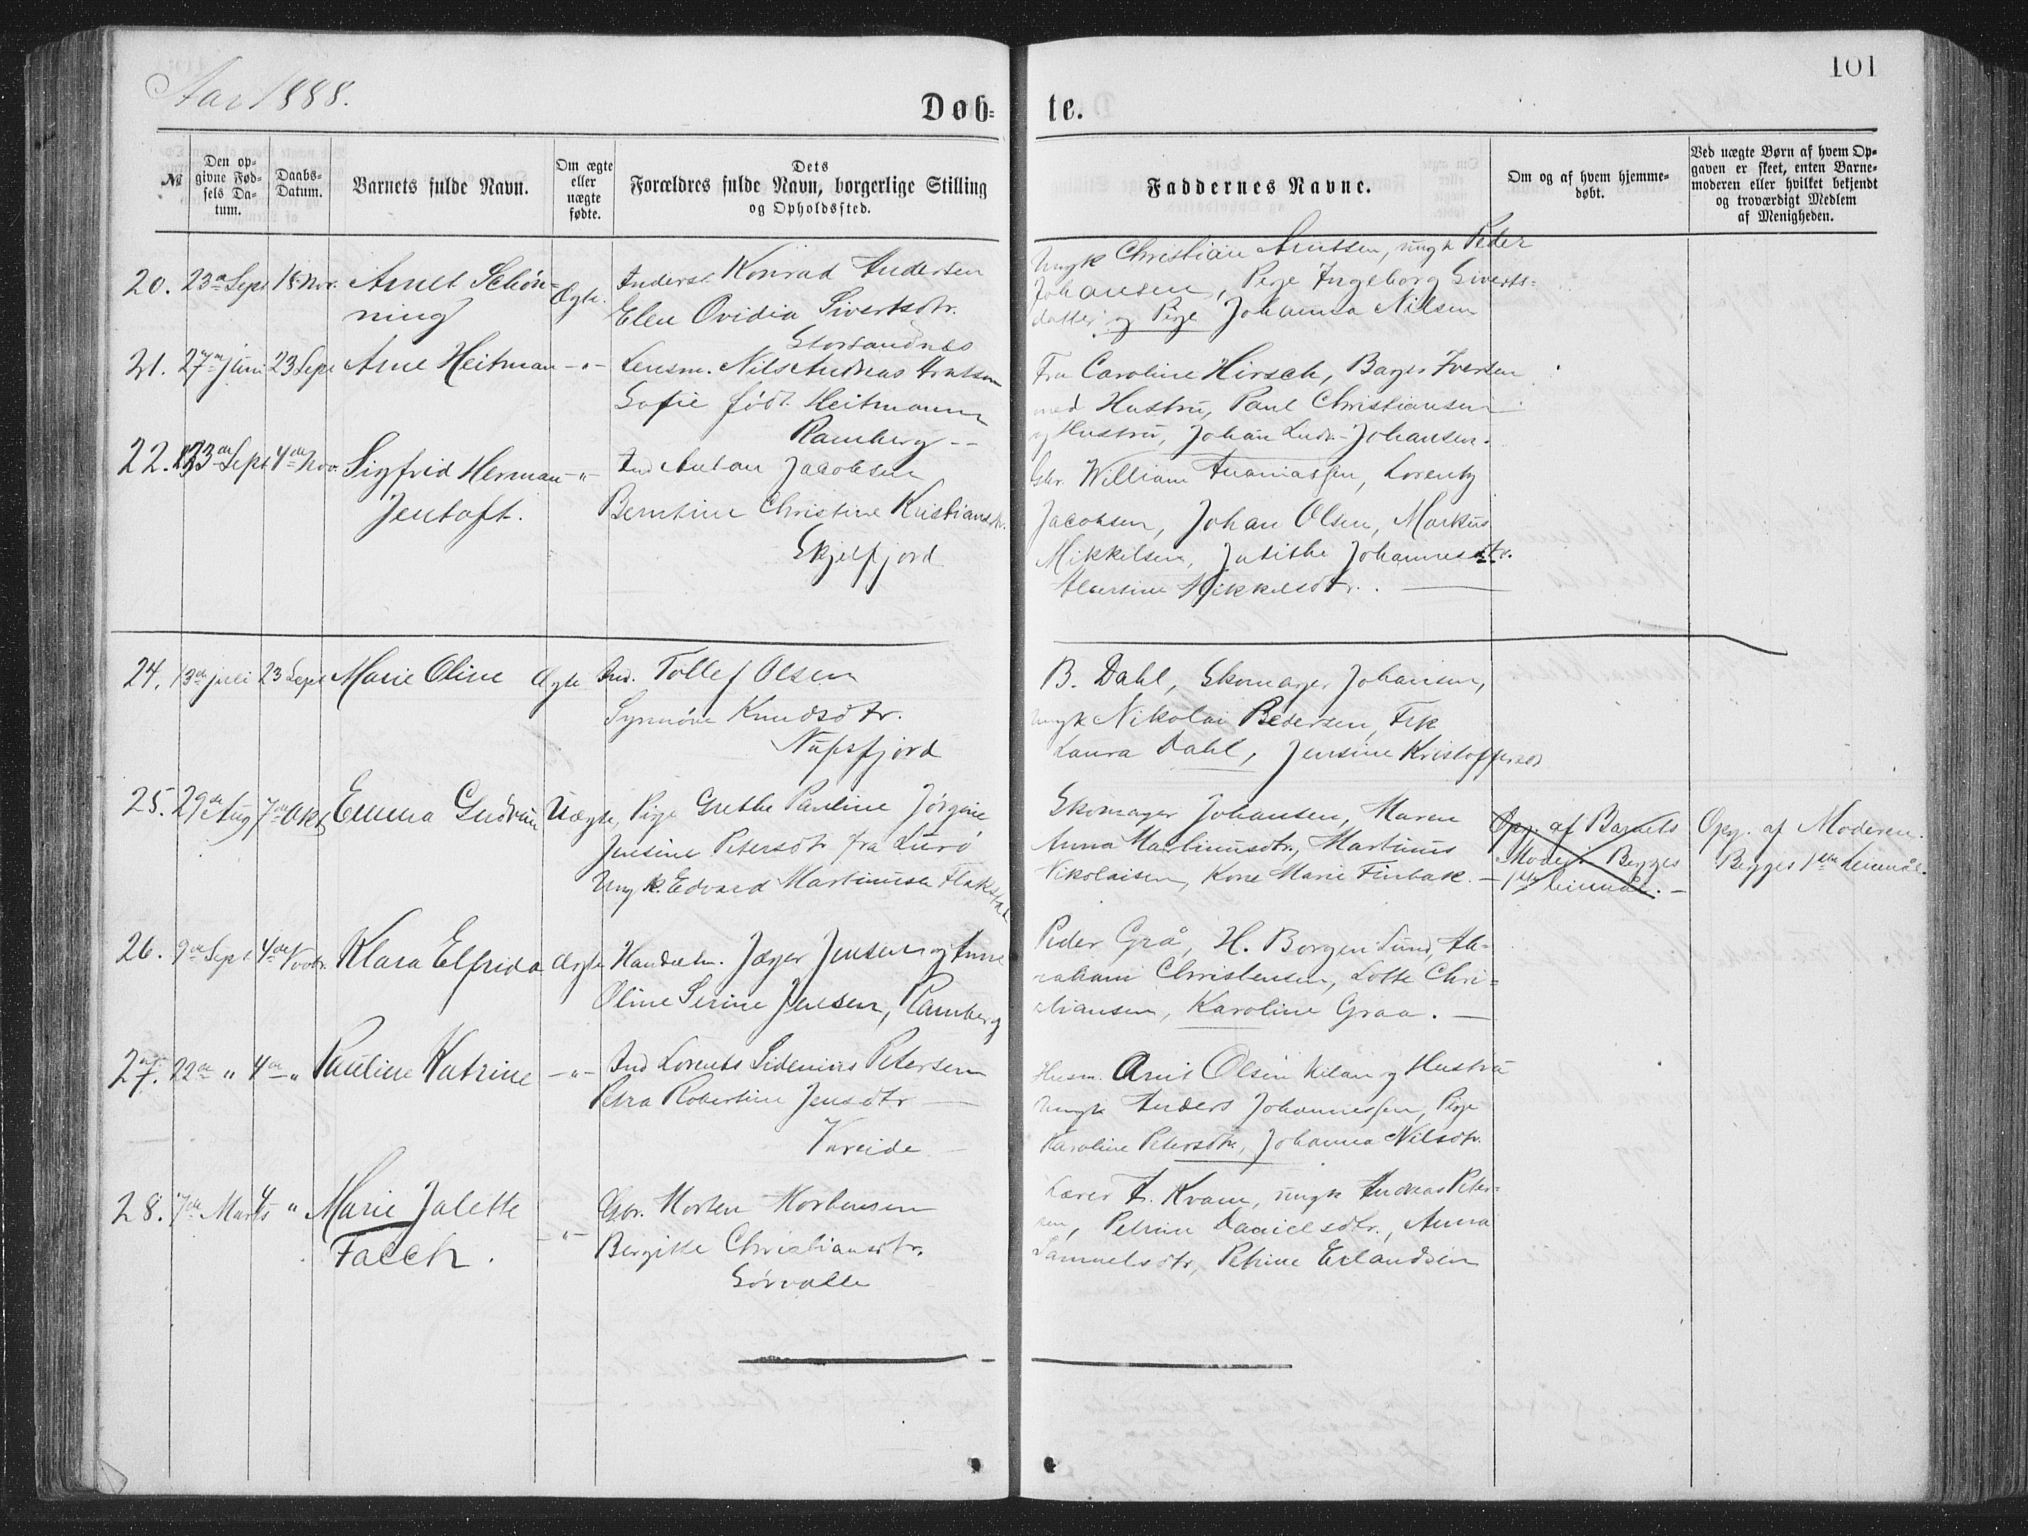 Aar 1888.
101
Døb-
te.
№
Den op-
givne Fød-
sels Da-
tum.
Daabs-
Datum.
Barnets fulde Navn.
Om ægte
eller
uægte
fødte.
Dets
Forældres fulde Navn, borgerlige Stilling
og Opholdssted.
Faddernes Navne.
Om og af hvem hjemme-
døbt.
Ved uægte Børn af hvem Op-
gaven er skeet, enten Barne-
moderen eller hvilket bekjendt
og troværdigt Medlem
af Menigheden.
20. 23de Sept 18 Nov. Arnet Schøn-
ning
Ægte.
Inderst Konrad Andersen
Elen Ovidia Sivertsdtr.
Storsandnes
Ungk Christian Arntsen, ungk Peder
Johansen, Pige Ingeborg Siverts-
datter og Pige Johanna Nilsen
21. 27de Juni 23 Sept Arne Heitman -"-
Lensm. Nils Andreas Arntsen
Sofie født Heitmann
Ramberg --
Fru Caroline Hirsch, Bager Iversen
med Hustru, Paul Christiansen
og Hustru, Johan Ludv. Johansen.
22. 23de Sept 4de Nov. Sigfrid Herman -"-
Jentoft.
Ind Anton Jacobsen
Berntine Christine Kristiansdtr.
Skjelfjord
Gbr. William Ananiassen, Lorentz
Jacobsen, Johan Olsen, Markus
Mikkelsen, Judithe Johannesdtr.
Albertine Mikkelsdtr.
24. 13de Juli 23 Sept Marie Oline Ægte
Ind. Tollef Olsen
Synnøve Knudsdtr.
Nufsfjord
B. Dahl, Skomager Johansen,
ungk Nikolai Pedersen, Frk
Laura Dahl, Jensine Kristoffersdtr
25. 29de Aug 7de Okt Emma Gudrun Uægte,
Pige Grethe Pauline Jørgine
Jensine Petersdtr fra Lurø
Ungk Edvard Martinusen Flakstad
Skomager Johansen, Maren
Anna Martinusdtr, Martinus
Nikolaisen, Kone Marie Finbak. -
Opg. af Barnets
Moder. Begges
1ste Leiermål. -
Opg. af Moderen.
Begges 1ste Leiermål.
26. 9de Sept 4de Novbr. Klara Elfrida Ægte
Handelsm. Jæger Jensen og Anne
Oline Serine Jensen, Ramberg
Peder Grå, H. Borgen Lund, Ab-
raham Christensen, Lotte Chri-
stiansen, Karoline Graa. -
27. 22de " 4de " Pauline Katrine -"-
Ind Lorents Sidenius Petersen
Petra Robertine Jensdtr -
Vareide -
Husm. Arnt Olsen Kilan og Hustru
Ungk Anders Johannessen, Pige
Karoline Petersdtr, Johanna Nilsdtr.
28. 7de Marts 4 " Marie Jalette
Falch.
-"-
Gbr. Morten Mortensen
Bergitte Christiansdtr.
Sørvalle
Lærer A. Kvam, ungk Andreas Peter-
sen, Petrine Danielsdtr., Anna
Samuelsdtr, Petrine Erlandsen